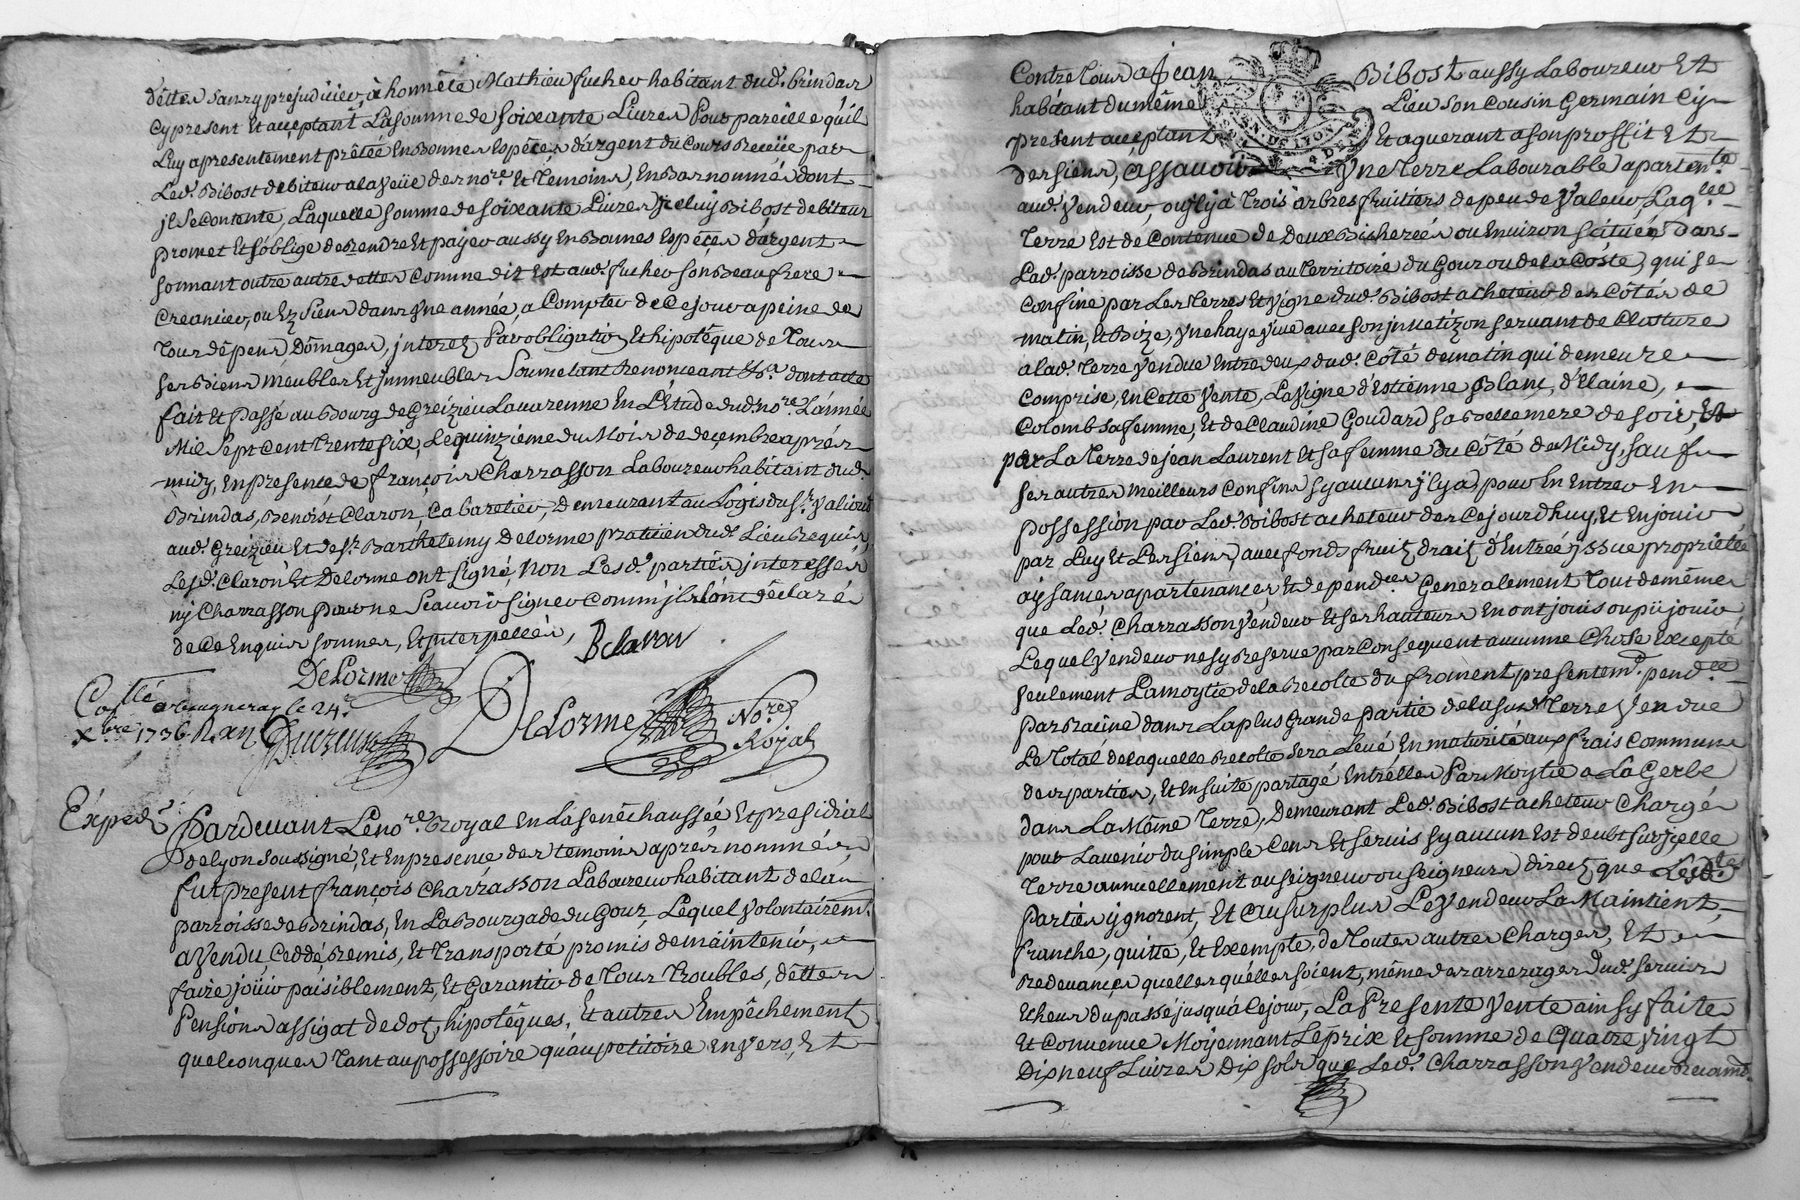 dêttes sans y prejudicier, à honnête Mathieu fucher habitant dud. brindas
cy present et acceptant La somme de soixante Livres Pour pareille qu'il
Luy a presentement prêtée En Bonnes Espêces d'argent du Cours Receüe par
Led. Bibost debiteur a la veüe des nore. Et Temoins, En Bas nommés dont
jl Se contente, Laquelle somme de soixante Livres jceluy Bibost debiteur
promet Et s'oblige de Rendre Et payer aussy En Bonnes Espêces d'argent
sonnant outre autre dettes Comme dit Est aud. fucher son Beaufrere
Creancier, ou Ez siens dans Vne année, a Compter de Ce jour a peine de
Tous dêpens Dômages, jnterez Par obligation Et hipotêque de Tous
ses Biens meubles Et jmmeubles Soumetant Renonçeant &a. dont acte
fait Et Passé au Bourg de Greizieu Lavarenne En L'Etude dud. nore. L'année
Mil Sept Cent Trente Six, Le quinzieme du Mois de deçembre aprés
midy, En presence de françois Charrasson Laboureur habitant dud.
Brindas, Benoist Claron, Cabaretier, Demeurant au Logis du Sr.
aud. Greizieu Et de Sr. Barthelemy Delorme praticien dud. Lieu Requis,
Lesd. Claron Et Delorme ont signé, Non Lesd. parties jnteressées
ny Charrasson pour ne Scavoir signer Comm'jls l'ont dêclaré
de Ce Enquis sommés, Et jnterpellés,
B Claron
DeLorme
DeLorme Nore. Royal
Collé a vaugneray le 24.
Xbre 1736
Expedé.
Pardevant Le nore. Royal En La senêchaussée Et presidial
de Lyon soussigné, Et En presence des temoins aprés nommés
fut present françois Charrasson Laboureur habitant de la
parroisse de Brindas, En La Bourgade du Gour, Lequel volontairemt.
a Vendu Ceddé Remis, Et Transporté promis de maintenir,
faire joüir paisiblement, Et Garantir de Tous Troubles, dêttes
Pensions assigat de dot, hipotêques, Et autres Empêchement
quelconques Tant au possessoire qu'au petitoire Envers, Et
Contre Tous a Jean Bibost aussy Laboureur Et
habitant du même Lieu son Cousin Germain Cy
present acceptant Et aquerant a son proffit Et
des siens, Assavoir Vne Terre Labourable apartente.
aud. Vendeur, ou jl y à Trois arbres fruitiers de peu de Valeur, Laqlle.
Terre Est de Contenue de Deux Bicherées ou Environ scituée Dans
Lad. parroisse de Brindas au Territoire du Gour ou de la Côste, qui se
Confine par Les Terres Et Vigne dud. Bibost acheteur des Côtés de
matin, Et Bize, Vne haye vive avec son servant de Closture
a lad. Terre Vendue Entre deux dud. Côté de matin qui demeure
Comprise, En Cette Vente, La Vigne d'Estienne Blanc, d'Elaine,
Colomb sa femme, Et de Claudine Goudard sa Bellemere de soir, Et
par La Terre de jean Laurent Et sa femme du Côté de Midy, sauf
ses autres meilleurs Confins sy aucuns jl y a, pour En Entrer En
Possession par Led. Bibost acheteur dez Cejourdhuy, Et En jouir
par Luy Et Les siens, avec fonds fruitz, droitz d'Entrée jssue proprietés
aysances apartenances, Et dependces. Generalement Tout de même
que Led. Charrasson Vendeur Et ses hauteurs En ont joui ou pü jouir
Lequel Vendeur ne sy Reserve par Consequent aucunne Chose Excepté
seulement La moytié de la Recolte du froment presentemt. pendlle.
par Racine dans La plus Grande partie de la susd. Terre Vendue
Le Total de laquelle Recolte sera Levé En maturité aux frais Communs
des parties, Et Ensuite partagé Entr'elles Par Moytié a La Gerbe
dans La Même Terre, Demeurant Led. Bibost acheteur Chargé
pour Lavenir du simple Cens Et servis sy aucun Est deubt sur jcelle
Terre annuellement au seigneur ou seigneurs directz que Lesdtes.
Parties jgnorent, Et au surplus Le Vendeur La Maintient,
franche, quitte, Et Exempte, de Toutes autres Charges, Et
Redevances quelles qu'elles soient, même des arrerages dud. servis
Echeus du passé jusqu'à Cejour, La Presente Vente ainsy faite
Et Convenue Moyennant Le prix Et somme de Quatre Vingt
Dix neuf Livres Dix sols que Led. Charrasson Vendeur